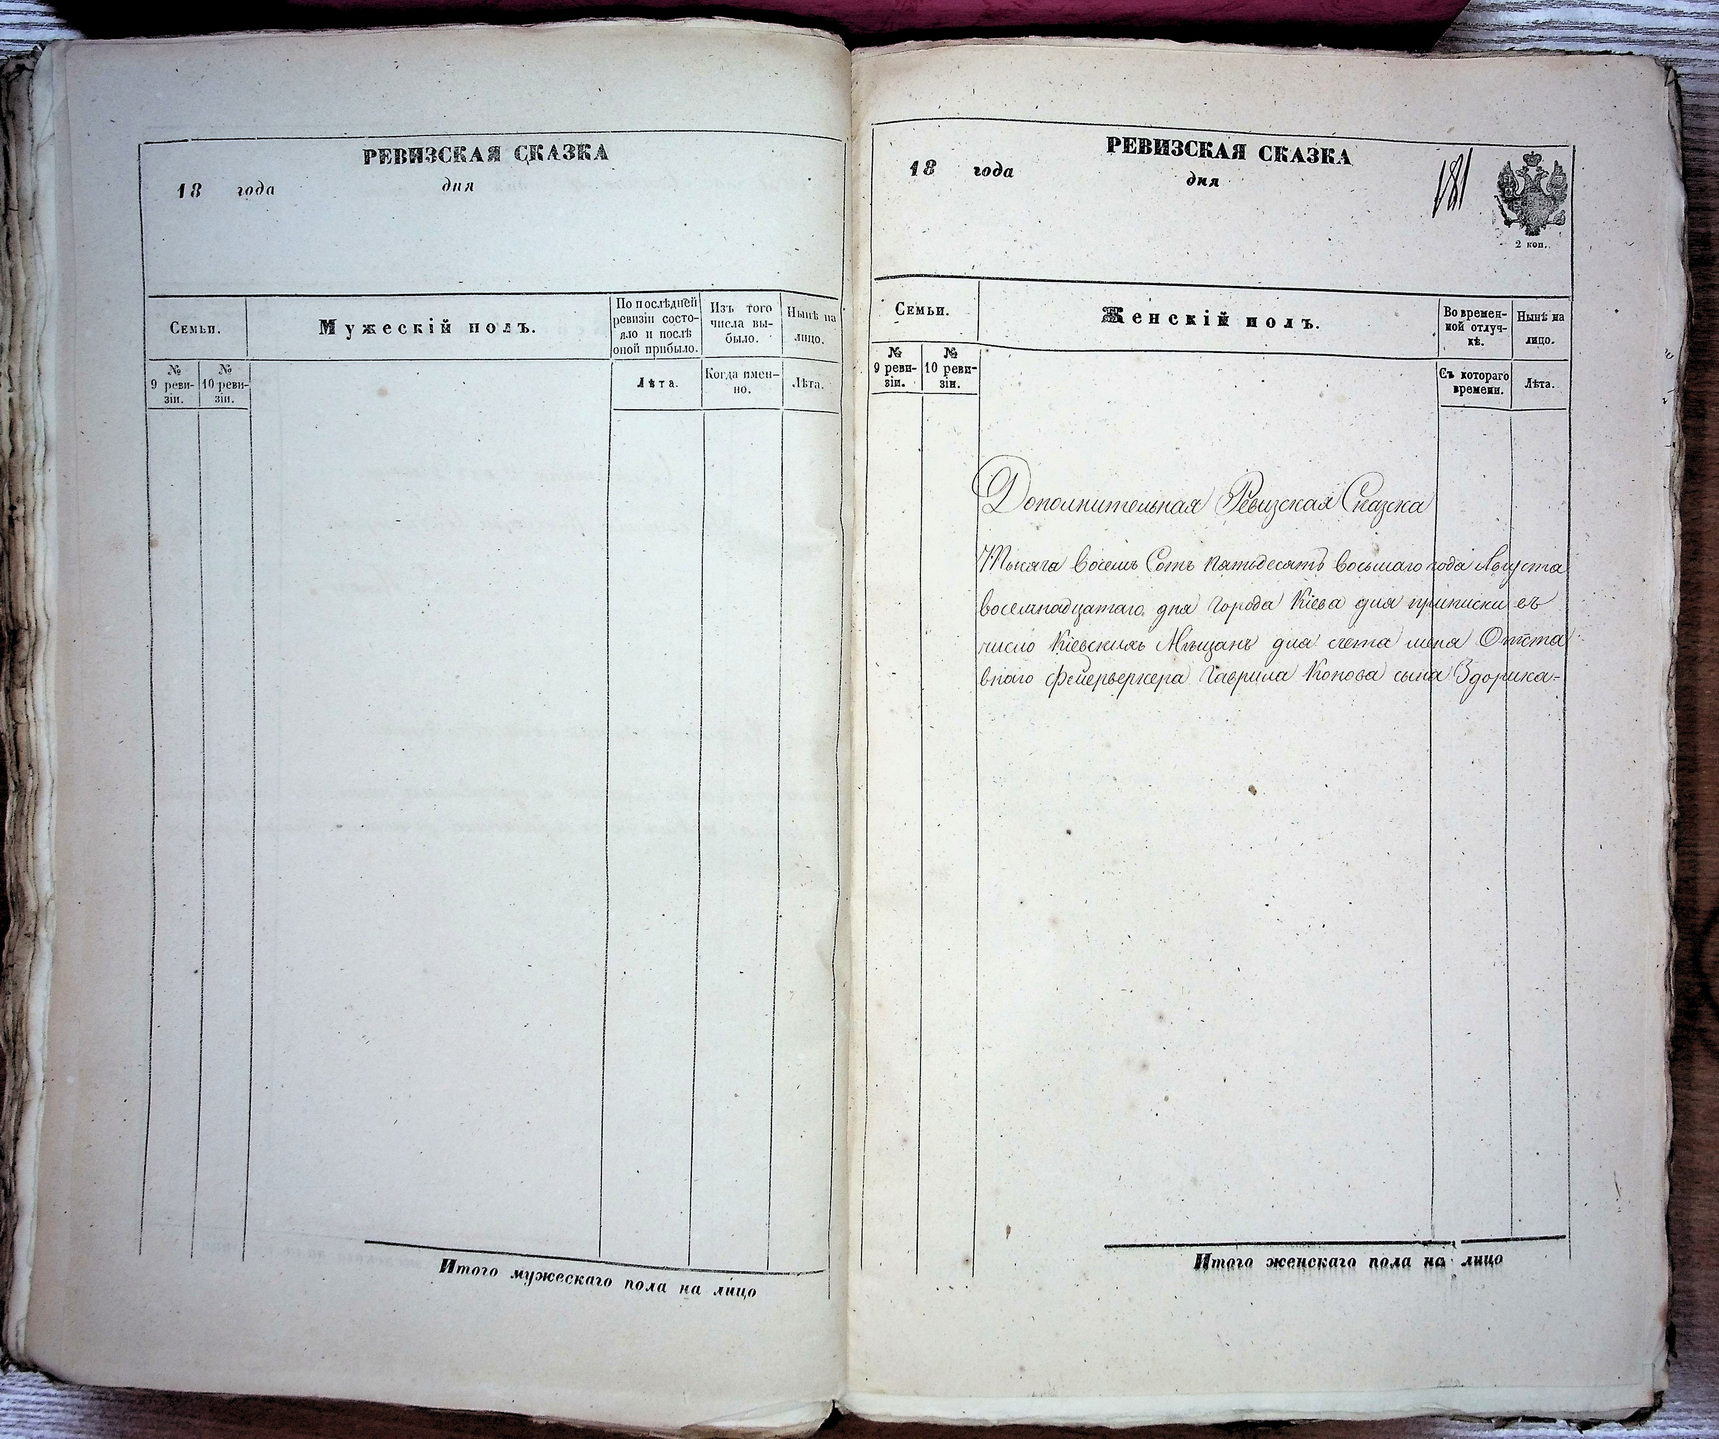 РЕВИЗСКАЯ СКАЗКА
18 года дня
Семьи.
Мужескій полъ.
По послѣдней ревизіи состояло и послѣ оной прибыло.
Изъ того числа выбыло.
Нынѣ на лицо.
№ 9 ревизіи.
№ 10 ревизіи.
Лѣта.
Когда именно.
Лѣта.
Итого мужескаго пола на лицо
РЕВИЗСКАЯ СКАЗКА
18 года дня
181
2 коп.
Семьи.
Женскій полъ.
Во временной отлучкѣ.
Нынѣ на лицо.
№ 9 ревизіи.
№ 10 ревизіи.
Съ котораго времени.
Лѣта.
Дополнительная Ревизская Сказка
Тысяча восемь Сотъ пятьдесятъ восьмаго года Августа
восемнадцатаго дня города Кіева для приписки въ
число Кіевскихъ Мѣщанъ для счета меня Отста
внаго фейерверкера Гаврила Конова сына Здорика-
Итого женскаго пола на лицо